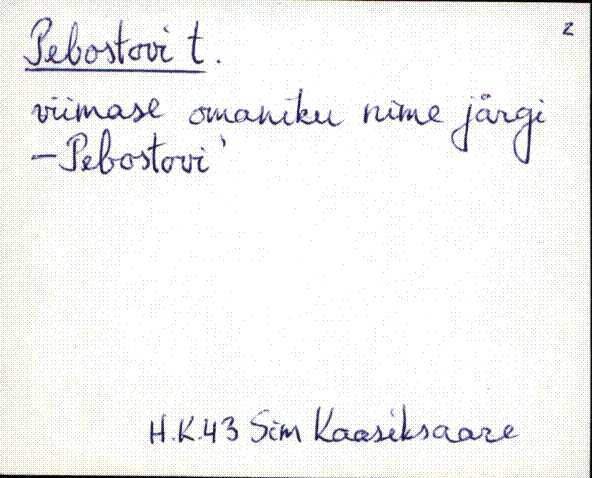 2
Pebostovi t.
viimase omaniku nime järgi
– Pebostovi'
H.K.43 Sim Kaasiksaare